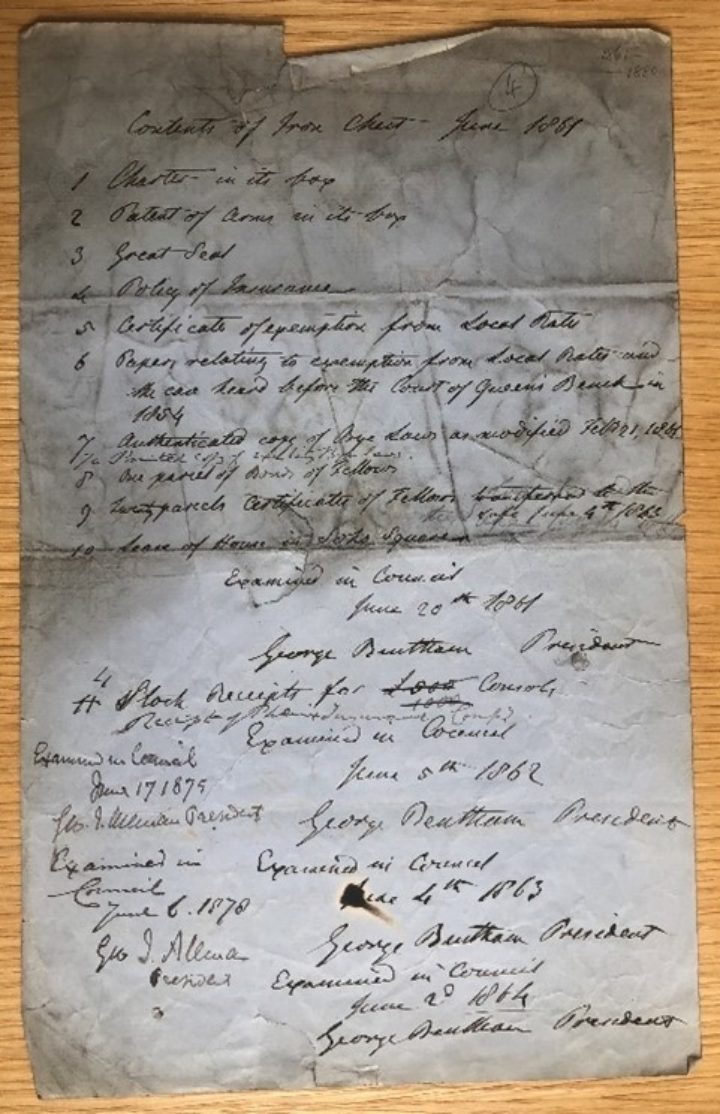 4
1880
Contents of Iron Chest - June 1861
1 Charter - in its box
2 Patent of Arms in its box
3 Great Seal
4 Policy of Insurance
5 Certificate of exemption from Local Rates
6 Papers relating to exemption from Local Rates and
the case heard before the Court of Queen's Bench in
1854
7 Authenticated copy of Bye Laws as modified Feb 21, 1861
7/a Printed copy of
8 One parcel of Bonds of Fellows
9 parcels Certificates of Fellows transferred to the
safe June 4th 1863
10 Lease of House in Soho Square
Examined in Council
June 20th 1861
George Bentham President
4
11 Stock Receipts for Consols
1000
Receipt of
Examined in Council
June 5th 1862
George Bentham President
Examined in Council
June 4th 1863
George Bentham President
Examined in Council
June 2d 1864
George Bentham President
Examined in Council
June 17 1875
Geo. J. Allman President
Examined in
Council
June 6. 1878
Geo J. Allman
President